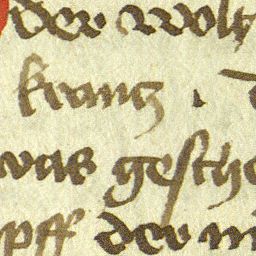 der wolt
krantz .
was gesche
pff der